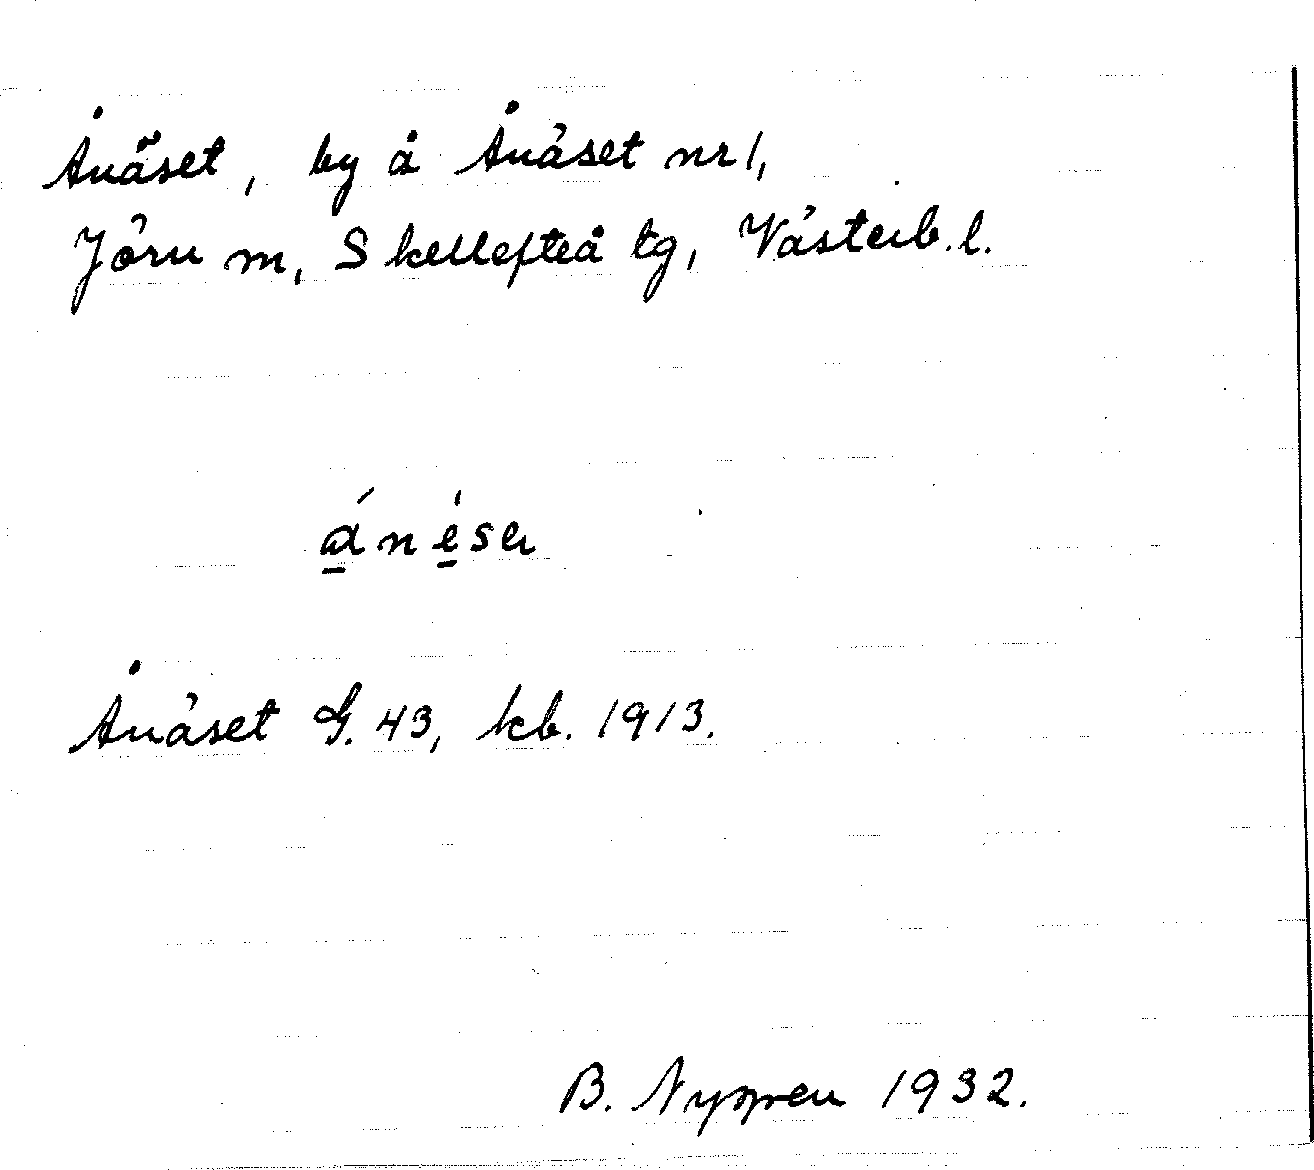 Ånäset, by å Ånäset nr 1,
Jörn m, Skellefteå tg, Västerb. l.
ánésa
Ånäset G. 43, kb. 1913.
B. Nygren 1932.